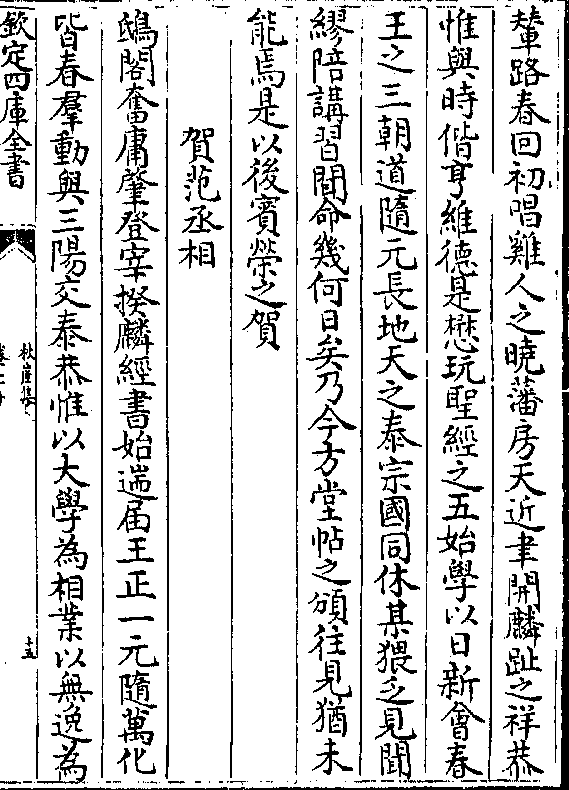 輦路春回初唱雞人之曉藩房天近聿開麟趾之祥恭
惟與時偕亨維德是懋玩聖經之五始學以日新會春
王之三朝道隨元長地天之泰宗國同休某猥乏見聞
繆陪講習聞命幾何日矣乃今方堂帖之頒往見猶未
能焉是以後賓榮之賀
賀范丞相
鴟閣奮庸肇登宰揆麟經書始遄屆王正一元隨萬化
皆春羣動與三陽交泰恭惟以大學為相業以無逸為
欽定四庫全書
秋崖集
十五